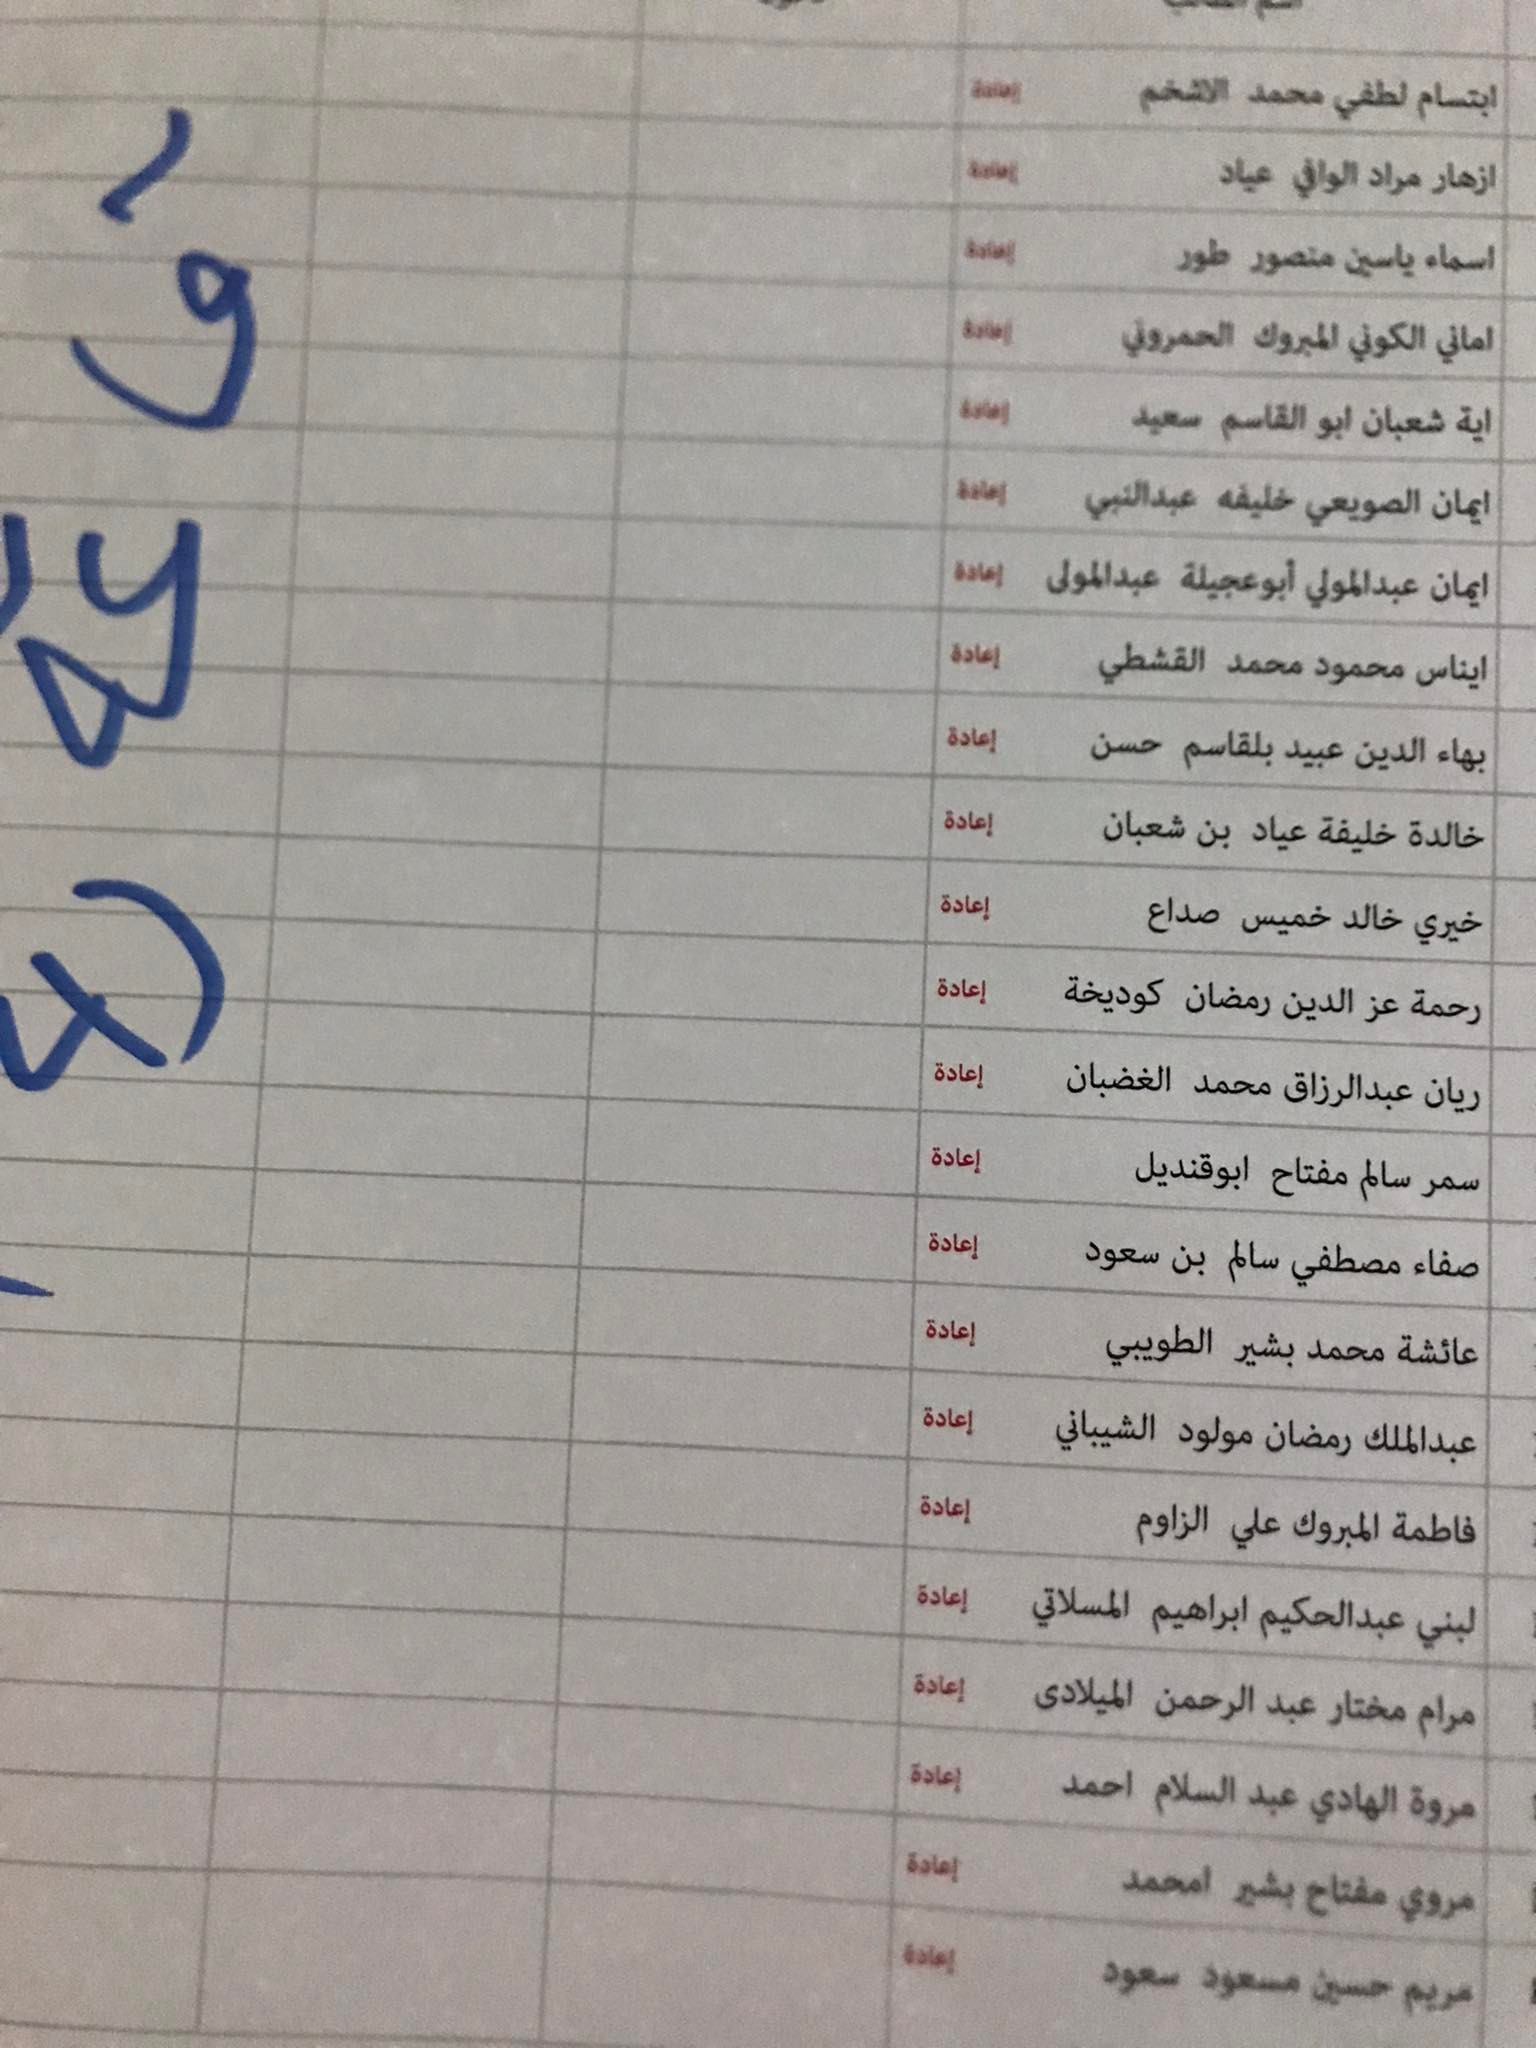 اسم الطالب
ابتسام لطفي محمد الاشخم إعادة
ازهار مراد الوافي عياد إعادة
اسماء ياسين منصور طور إعادة
اماني الكوني المبروك الحمروني إعادة
اية شعبان ابو القاسم سعيد إعادة
ايمان الصويعي خليفه عبدالنبي إعادة
ايمان عبدالمولي أبوعجيلة عبدالمولى إعادة
ايناس محمود محمد القشطي إعادة
بهاء الدين عبيد بلقاسم حسن إعادة
خالدة خليفة عياد بن شعبان إعادة
خيري خالد خميس صداع إعادة
رحمة عز الدين رمضان كوديخة إعادة
ريان عبدالرزاق محمد الغضبان إعادة
سمر سالم مفتاح ابوقنديل إعادة
صفاء مصطفي سالم بن سعود إعادة
عائشة محمد بشير الطويبي إعادة
عبدالملك رمضان مولود الشيباني إعادة
فاطمة المبروك علي الزاوم إعادة
لبني عبدالحكيم ابراهيم المسلاتي إعادة
مرام مختار عبد الرحمن الميلادى إعادة
مروة الهادي عبد السلام احمد إعادة
مروي مفتاح بشير امحمد إعادة
مريم حسين مسعود سعود إعادة